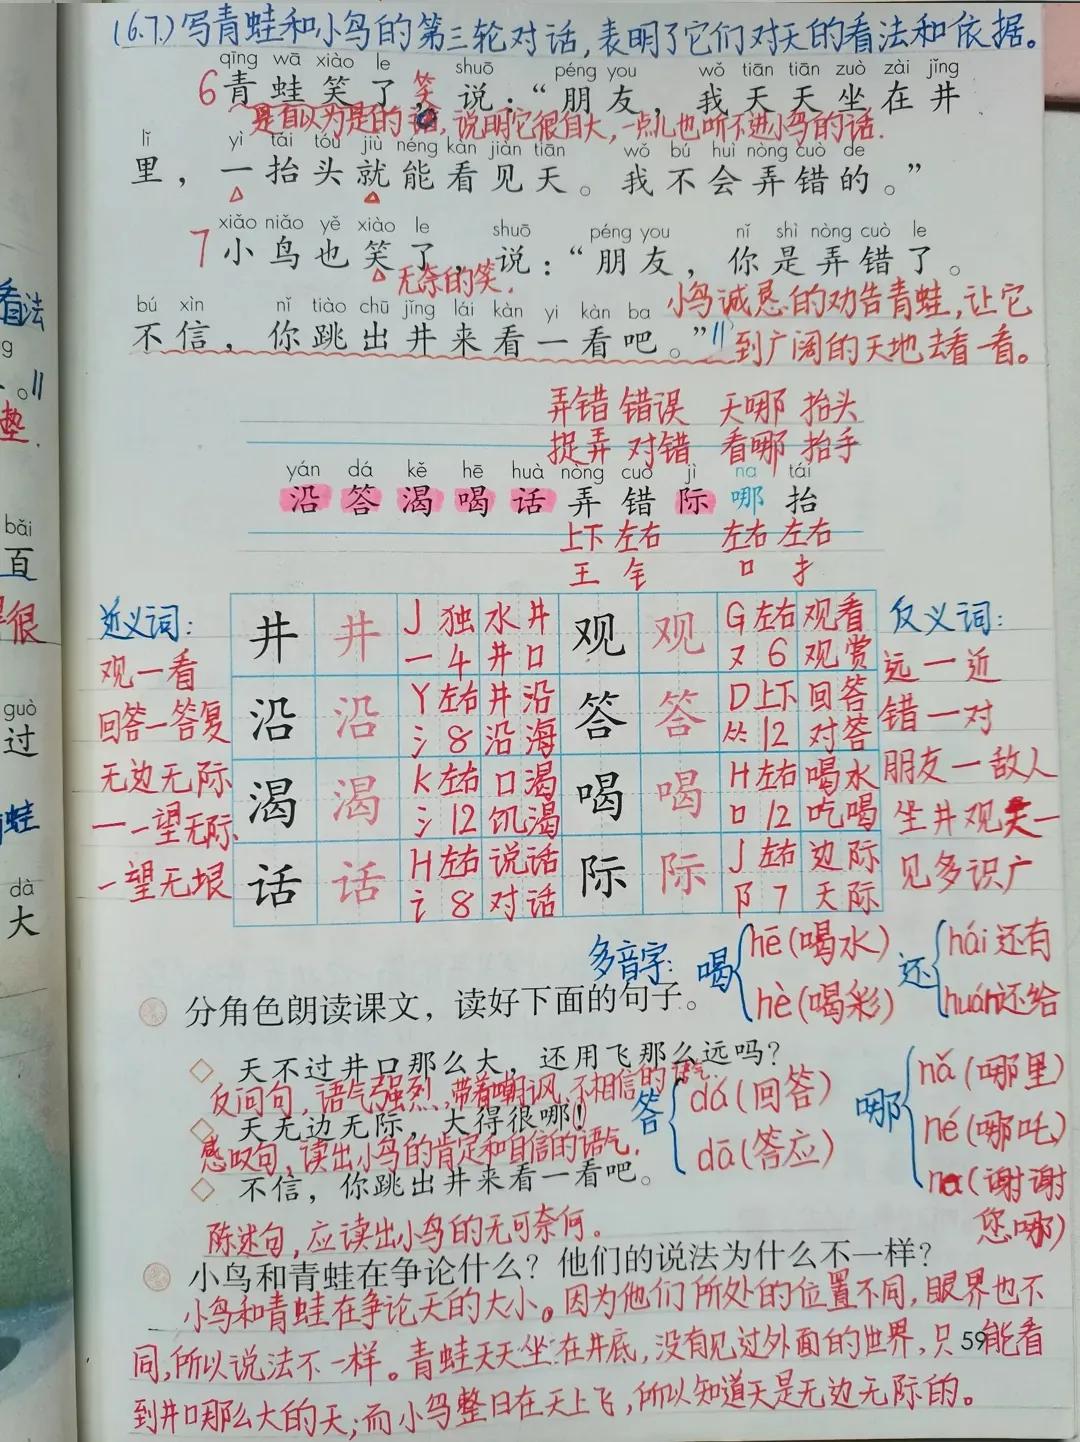 (6.7.)写青蛙和小鸟的第三轮对话,表明了它们对天的看法和依据。
qīng wā xiào le shuō péng you wǒ tiān tiān zuò zài jǐng
6 青蛙笑了,笑 说:“朋友,我天天坐在井
是自以为是的 说明它很自大,一点儿也听不进小鸟的话.
lǐ yì tái tóu jiù néng kàn jiàn tiān wǒ bú huì nòng cuò de
里,一抬头就能看见天。我不会弄错的。”
xiǎo niǎo yě xiào le shuō péng you nǐ shì nòng cuò le
7 小鸟也笑了,说:“朋友,你是弄错了。
无奈的笑.
bú xìn nǐ tiào chū jǐng lái kàn yi kàn ba
不信,你跳出井来看一看吧。”
小鸟诚恳的劝告青蛙,让它
到广阔的天地去看一看。
弄错 错误 天哪 抬头
捉弄 对错 看哪 抬手
yán dá kě hē huà nòng cuò jì na tái
沿 答 渴 喝 话 弄 错 际 哪 抬
上下 左右 左右 左右
王 钅 口 扌
近义词:
观—看
回答—答复
无边无际
—一望无际.
-一望无垠
井 井 J 独 水井 观 观 G 左右 观看
一 4 井口 又 6 观赏
沿 沿 Y 左右 井沿 答 答 D 上下 回答
氵 8 沿海 ⺮ 12 对答
渴 渴 K 左右 口渴 喝 喝 H 左右 喝水
氵 12 饥渴 口 12 吃喝
话 话 H 左右 说话 际 际 J 左右 边际
讠 8 对话 阝 7 天际
反义词:
远—近
错—对
朋友—敌人
坐井观天—
见多识广
多音字: 喝 hē(喝水) 还 hái 还有
hè(喝彩) huán还给
分角色朗读课文,读好下面的句子。
天不过井口那么大,还用飞那么远吗?
反问句,语气强烈,带着嘲讽、不相信的语气.
天无边无际,大得很哪!
感叹句,读出小鸟的肯定和自信的语气.
不信,你跳出井来看一看吧。
陈述句,应读出小鸟的无可奈何。
答 dá(回答)
dā(答应)
哪 nǎ(哪里)
né(哪吒)
na(谢谢
您哪)
小鸟和青蛙在争论什么?他们的说法为什么不一样?
小鸟和青蛙在争论天的大小。因为他们所处的位置不同,眼界也不
同,所以说法不一样。青蛙天天坐在井底,没有见过外面的世界,只能看
59
到井口那么大的天;而小鸟整日在天上飞,所以知道天是无边无际的。
看法
g
。
垫.
bǎi
百
很
guò
过
蛙
dà
大